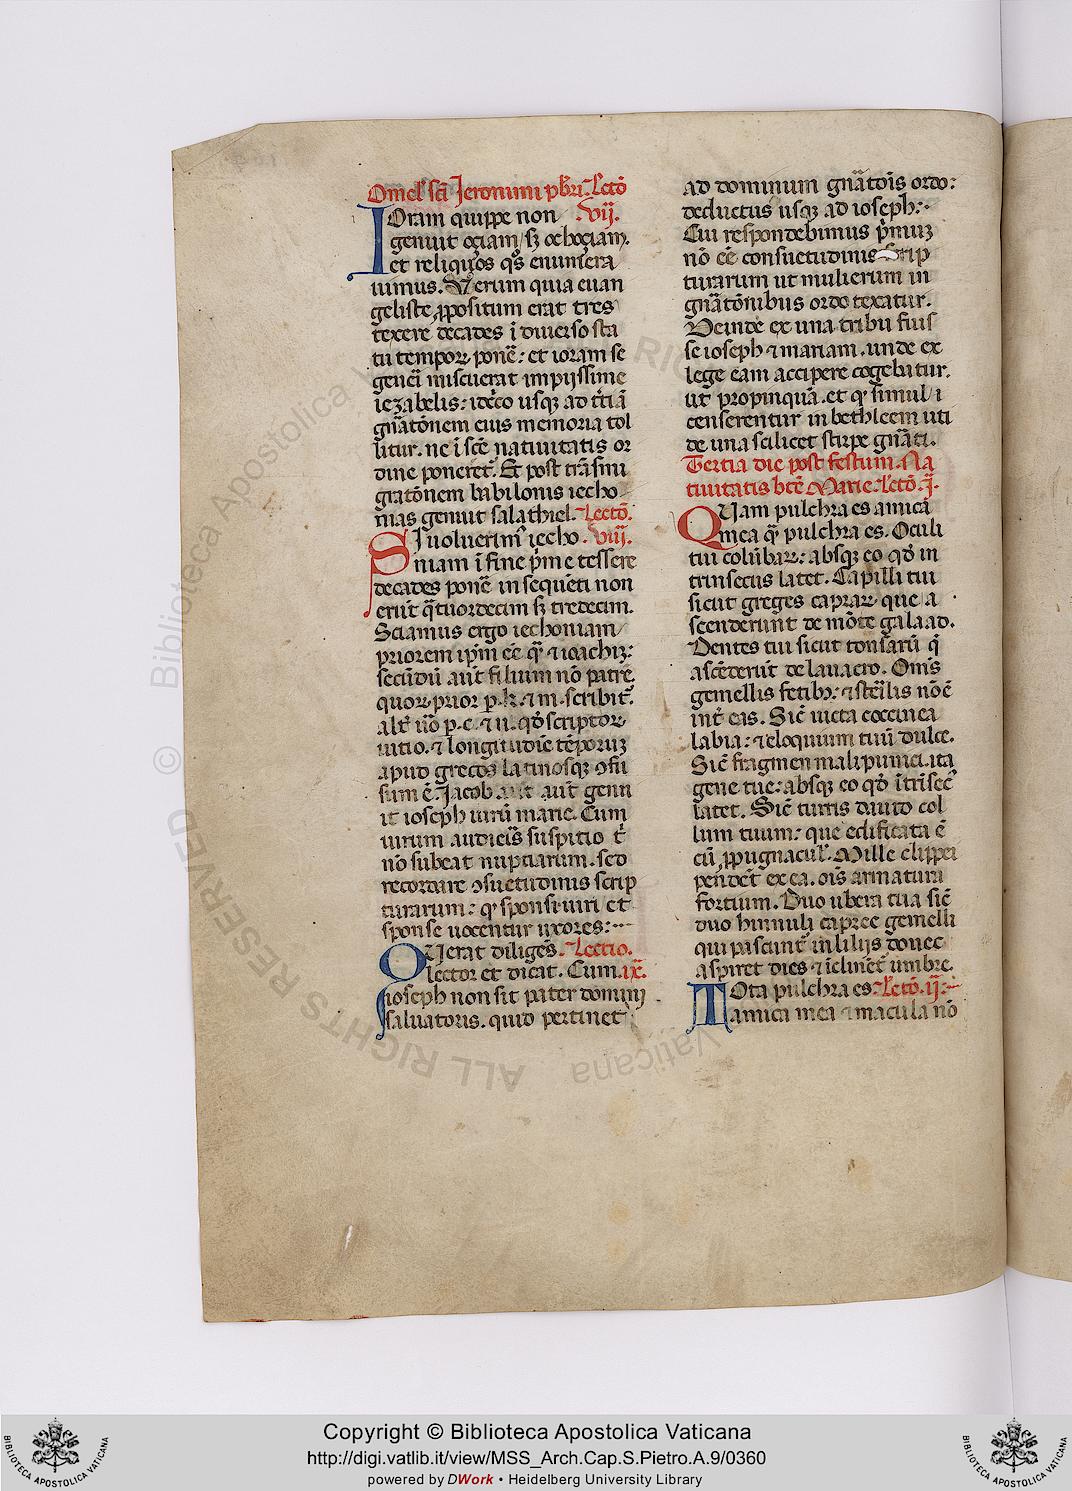 Omel' scī Jeronimi pbri. Lectō
vij.
Ioram quippe non
genuit oçiam, sȝ ochoçiam.
et reliquos q̄s enumera
uimus. Verum quia euan
geliste ꝓpositum erat tres
texere decades ī diuerso sta
tu tempoꝝ ponē: et ioram se
generi miscuerat impijssime
iezabelis: idēco usqȝ ad t̄tiā
gn̄atōnem eius memoria tol
litur. ne ī scē natiuitatis or
dine poneret. Et post trāsmi
gratōnem babilonis iecho
nias genuit salathiel. Lectō.
viij.
Si uoluerim' iecho
niam ī fine p̄me tessere
decades ponē in sequēti non
erūt q̄tuordecim sȝ tredecim.
Sciamus ergo iechoniam
priorem ip̄m eē q̄ ⁊ ioachiȝ:
secūdū aūt filium nō patrē.
quoꝝ prior p. k. ⁊ m. scribit̄.
alt̄ ūo p. c. ⁊ n. qđ scriptoꝝ
uitio. ⁊ longitudīe tēporuȝ
apud grecos latinosqȝ ꝯfu
sum ē. Jacob aūt genu
it ioseph uirū marie. Cum
uirum audieīs suspitio t̄
nō subeat nuptiarum. sed
recordare ꝯsuetudinis scrip
turarum: q̄ sponsi uiri et
sponse uocentur uxores:
Querat diligēs Lectio.
lector et dicat. Cum ix.
ioseph non sit pater domini
saluatoris. quid pertinet
ad dominum gn̄atōīs ordo:
deductus usqȝ ad ioseph:
Cui respondebimus p̄muȝ
nō eē consuetudinis scrip
turarum ut mulierum in
gn̄atōnibus ordo texatur.
Deinde ex una tribu fuis
se ioseph ⁊ mariam. unde ex
lege eam accipere cogebatur.
ut propinquā. et q̄ simul i
censerentur in bethleem uti
de una scilicet stirpe gn̄ati.
Tertia die post festum. Na
tiuitatis btē Marie. lectō. j.
Quam pulchra es amica
mea q̄ pulchra es. Oculi
tui colūbaꝝ: absqȝ eo qđ in
trinsecus latet. Capilli tui
sicut greges capraꝝ que a
scenderunt de mōte galaad.
Dentes tui sicut tonsarū q̄
ascēderūt de lauacro. Om̄s
gemellis fetibȝ: ⁊ sterilis nō ē
int̄ eas. Sic̄ uicta coccinea
labia: ⁊ eloquium tuū dulce.
Sic̄ fragmen mali punici. ita
gene tue: absqȝ eo qđ ītrīsec'
latet. Sic̄ turris dauid col
lum tuum: que edificata ē
cū ꝓpugnacul'. Mille clippei
pendēt ex ea. oīs armatura
fortium. Duo ubera tua sic̄
duo hinnuli capree gemelli
qui pascunt' in lilijs donec
aspiret dies ⁊ iclinēt umbre.
Tota pulchra es Lectō. ij.
amica mea ⁊ macula nō
© Biblioteca Apostolica Vaticana
ALL RIGHTS RESERVED
Copyright © Biblioteca Apostolica Vaticana
http://digi.vatlib.it/view/MSS_Arch.Cap.S.Pietro.A.9/0360
powered by DWork • Heidelberg University Library
BIBLIOTECA APOSTOLICA VATICANA
BIBLIOTECA APOSTOLICA VATICANA